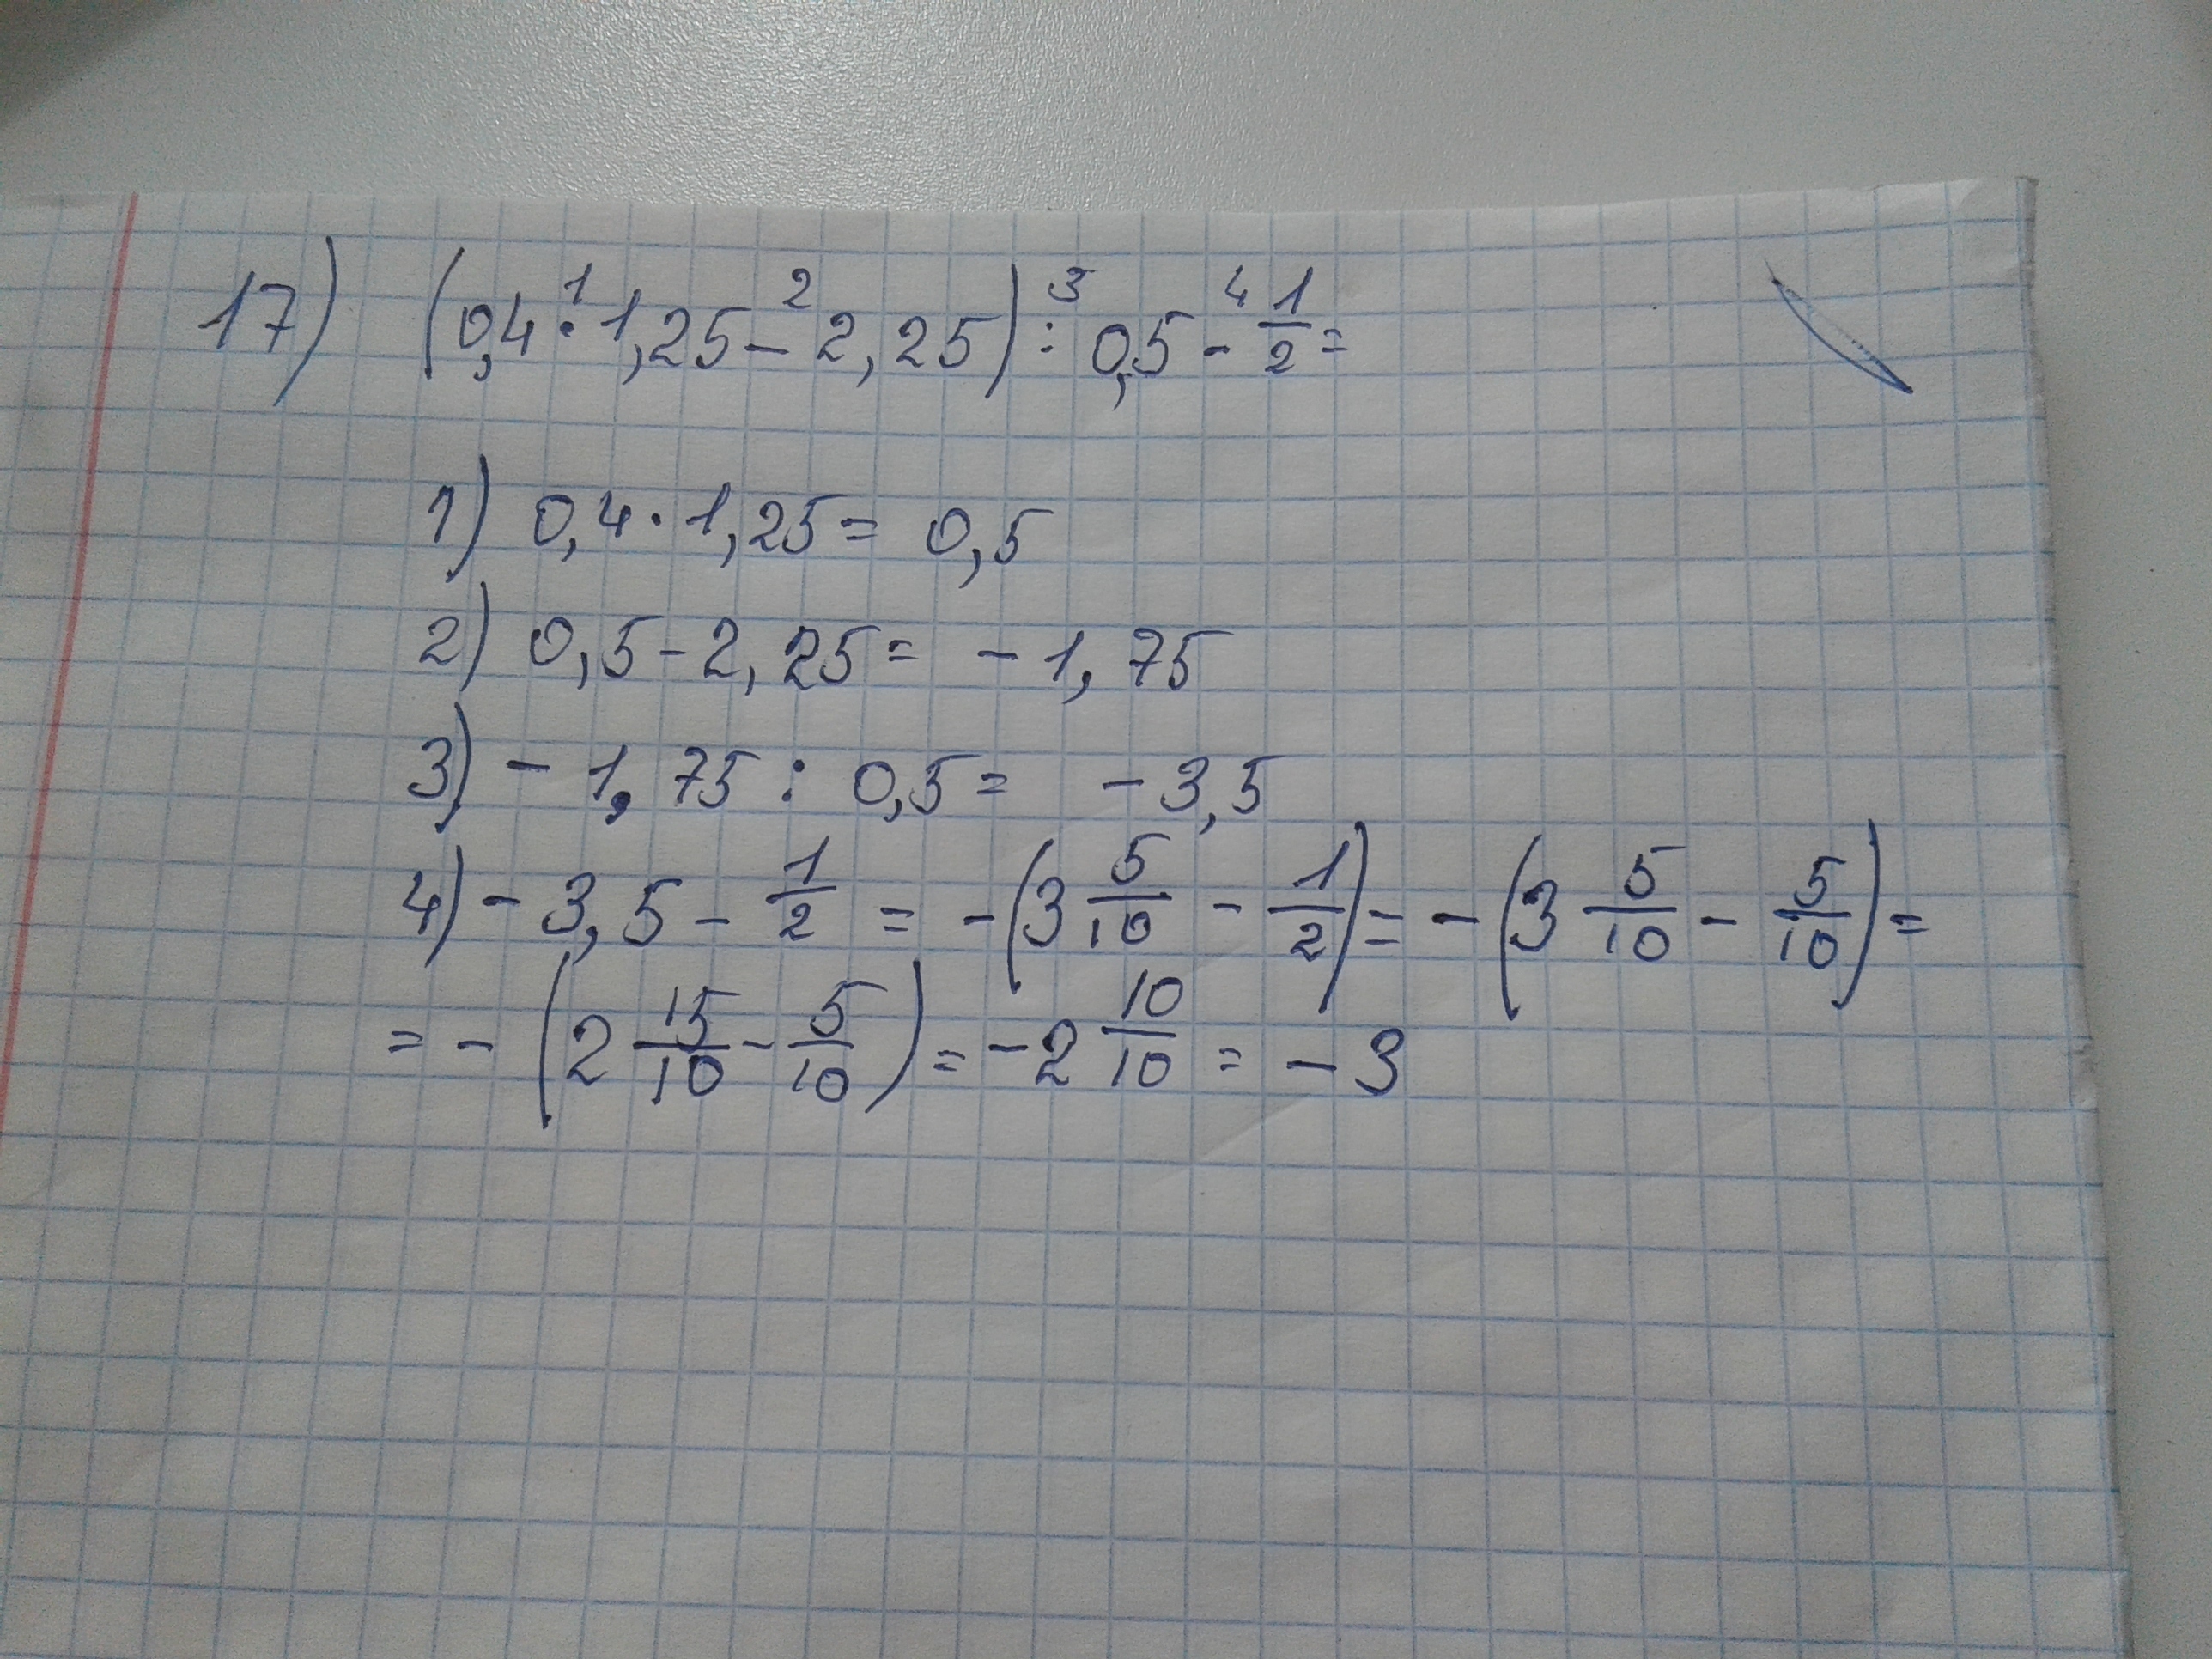 17) (0,4 ·¹ 1,25 –² 2,25) :³ 0,5 -⁴ 1/2 =
1) 0,4 · 1,25 = 0,5
2) 0,5 - 2,25 = - 1,75
3) - 1,75 : 0,5 = - 3,5
4) - 3,5 - 1/2 = - (3 5/10 - 1/2) = - (3 5/10 - 5/10) =
= - (2 15/10 - 5/10) = - 2 10/10 = - 3